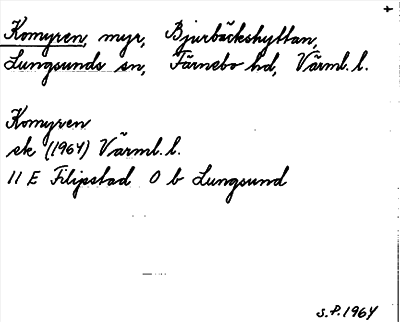 +
Komyren, myr, Bjurbäckshyttan,
Lungsunds sn, Färnebo hd, Värml. l.
Komyren
ek (1964) Värml. l.
11 E Filipstad 0 b Lungsund
S.P. 1964